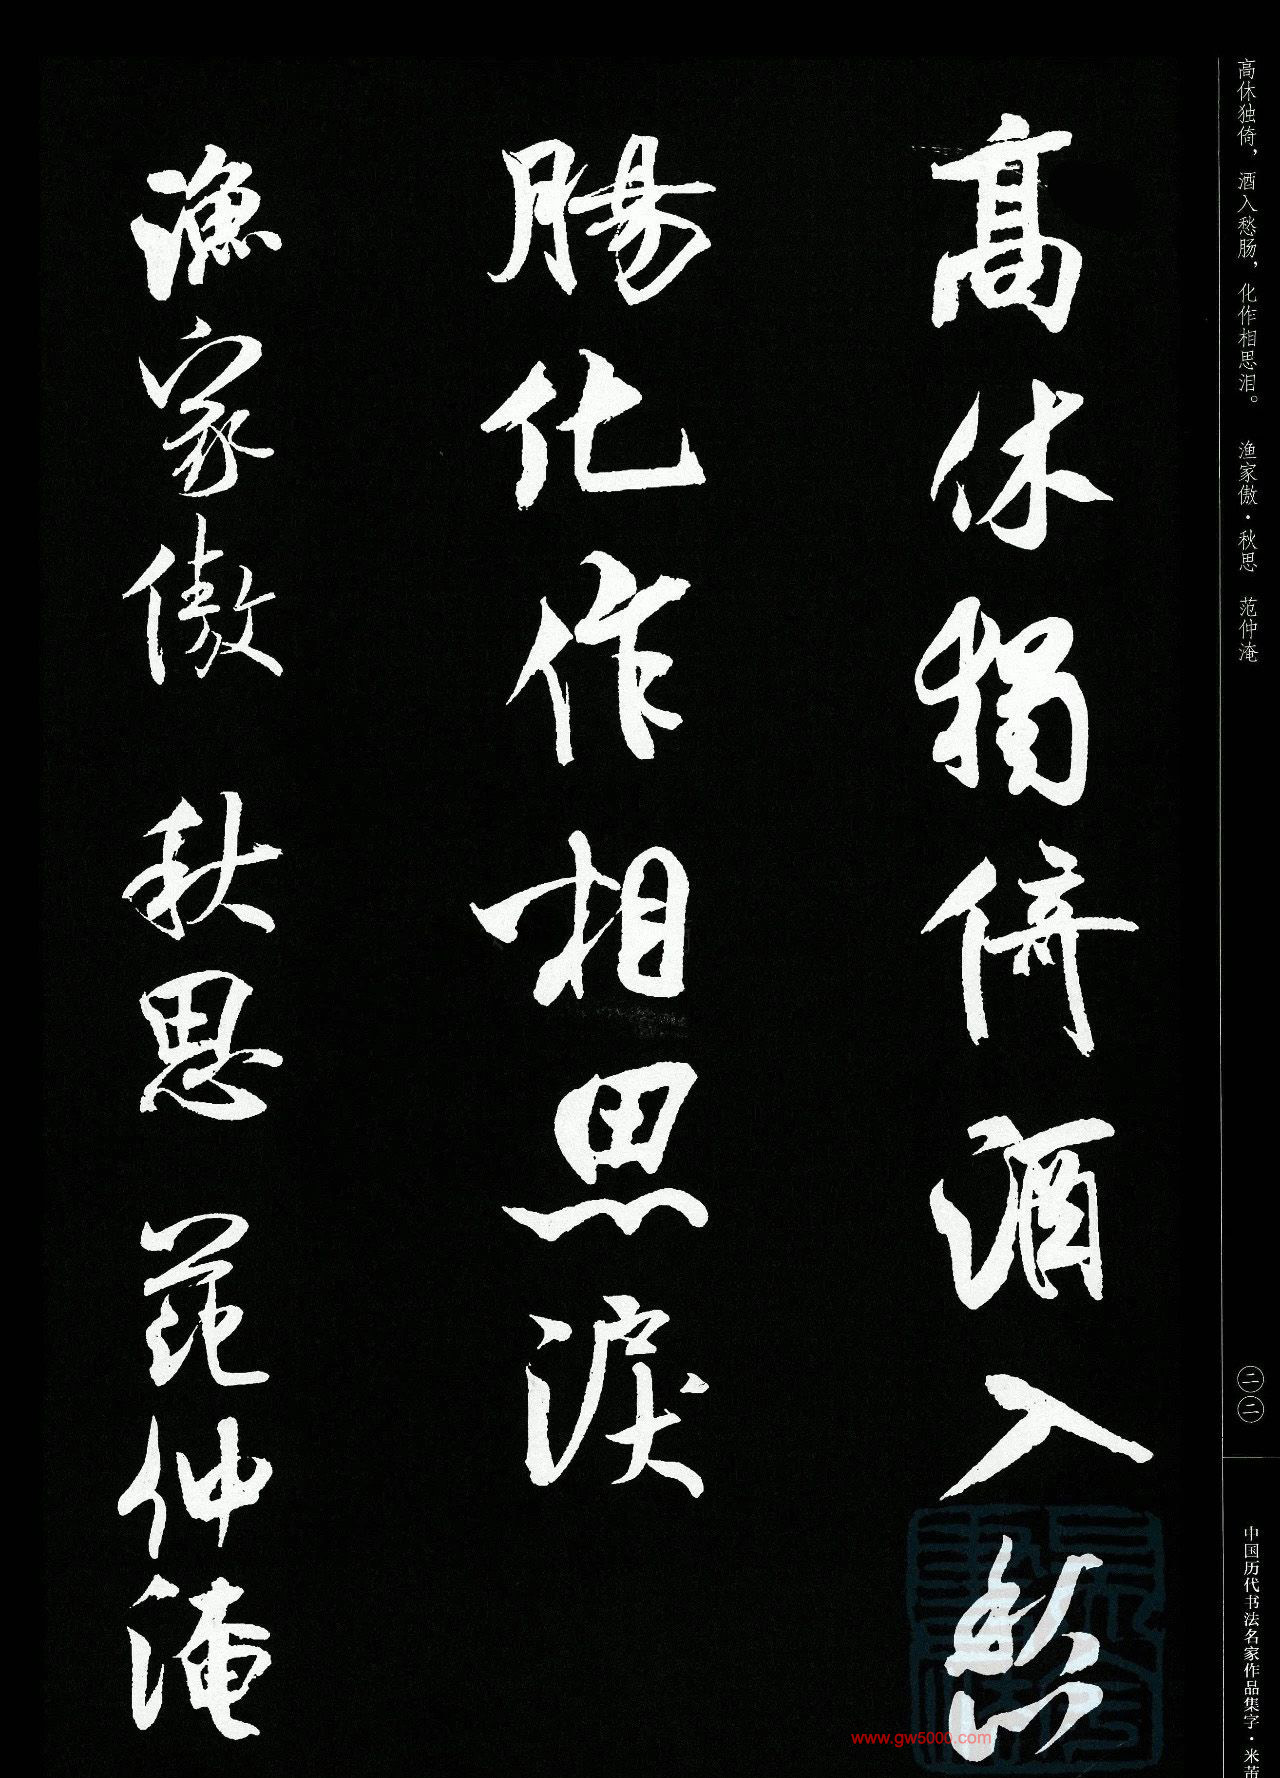 高休獨倚酒入愁
腸化作相思淚
漁家傲 秋思 范仲淹
高休独倚，酒入愁肠，化作相思泪。 渔家傲·秋思 范仲淹
二二
中国历代书法名家作品集字·米芾
www.gw5000.com